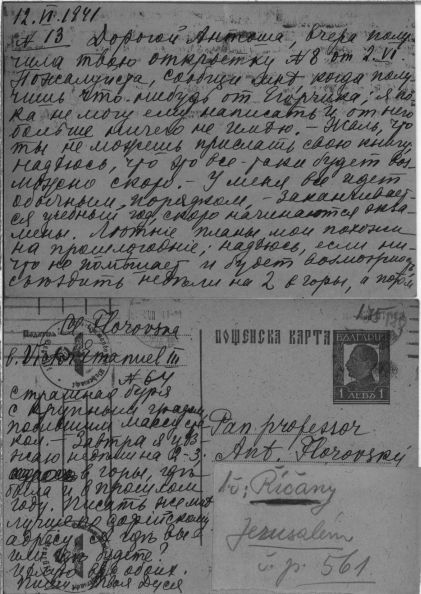 12.VI.1941
№ 13 Дорогой Антоша, вчера полу-
чила твою открытку № 8 от 2.VI.
Пожалуйста, сообщи мне когда полу-
чишь что-нибудь от Егорчика, я по-
ка не могу ему написать и от него
больше ничего не имею. – Жаль, что
ты не можешь прислать свою книгу,
надеюсь, что это все-таки будет воз-
можно скоро. – У меня все идет
обычным порядком, – заканчивает-
ся учебный год, скоро начинаются экза-
мены. Летние планы мои похожи
на прошлогодние; надеюсь, если ни-
что не помешает и будет возможность
съездить недели на 2 в горы, а потом
Cl. Florovska
в. Viktor Emanuel III
№ 64
ПОЩЕНСКА КАРТА
БЪЛГАРИЯ
1 ЛЕВЪ 1
страшная буря
с крупным градом,
Завтра я уез-
жаю недели на 2-3
в горы, где
была и в прошлом
году. Писать
лучше
адресу
Целую вас обоих.
Твоя Дуся
Pan professor
Ant. Florovský
Říčany
Jerusalém
č. p. 561